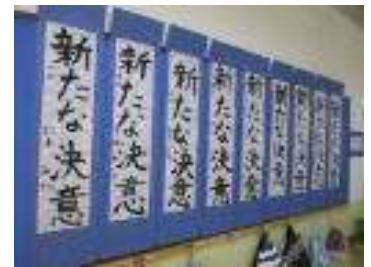 新たな決意
新たな決意
新たな決意
新たな決意
新たな決意
新たな決意
新たな決意
新たな決意
新たな決意